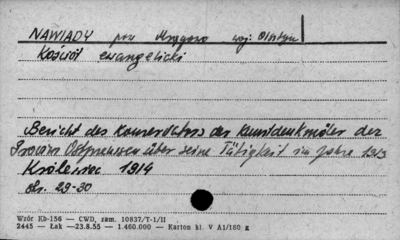 NAWIADY pow Mrągowo woj. Olsztyn
Kościół ewangelicki
Bericht des Konservators der Kunstdenkmäler der
Provinz Ostpreussen über seine Tätigkeit im Jahre 1913
Królewiec 1914
str. 29-30
Wzór Kb-156 — CWD, zam. 10837/T-1/II
2445 — Łak —23.8.55 — 1.460.000 — Karton kl. V A1/180 g